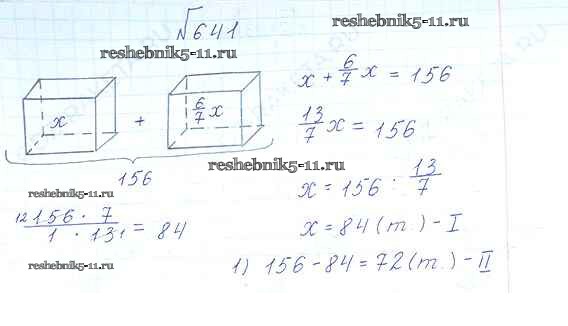 √641
reshebnik5-11.ru
reshebnik5-11.ru
x + 6/7 x = 156
x + 6/7 x
13/7 x = 156
reshebnik5-11.ru
156
x = 156 : 13/7
reshebnik5-11.ru
12 156 · 7 / 1 · 13 1 = 84
x = 84 (т.) - I
reshebnik5-11.ru
1) 156 - 84 = 72 (т.) - II